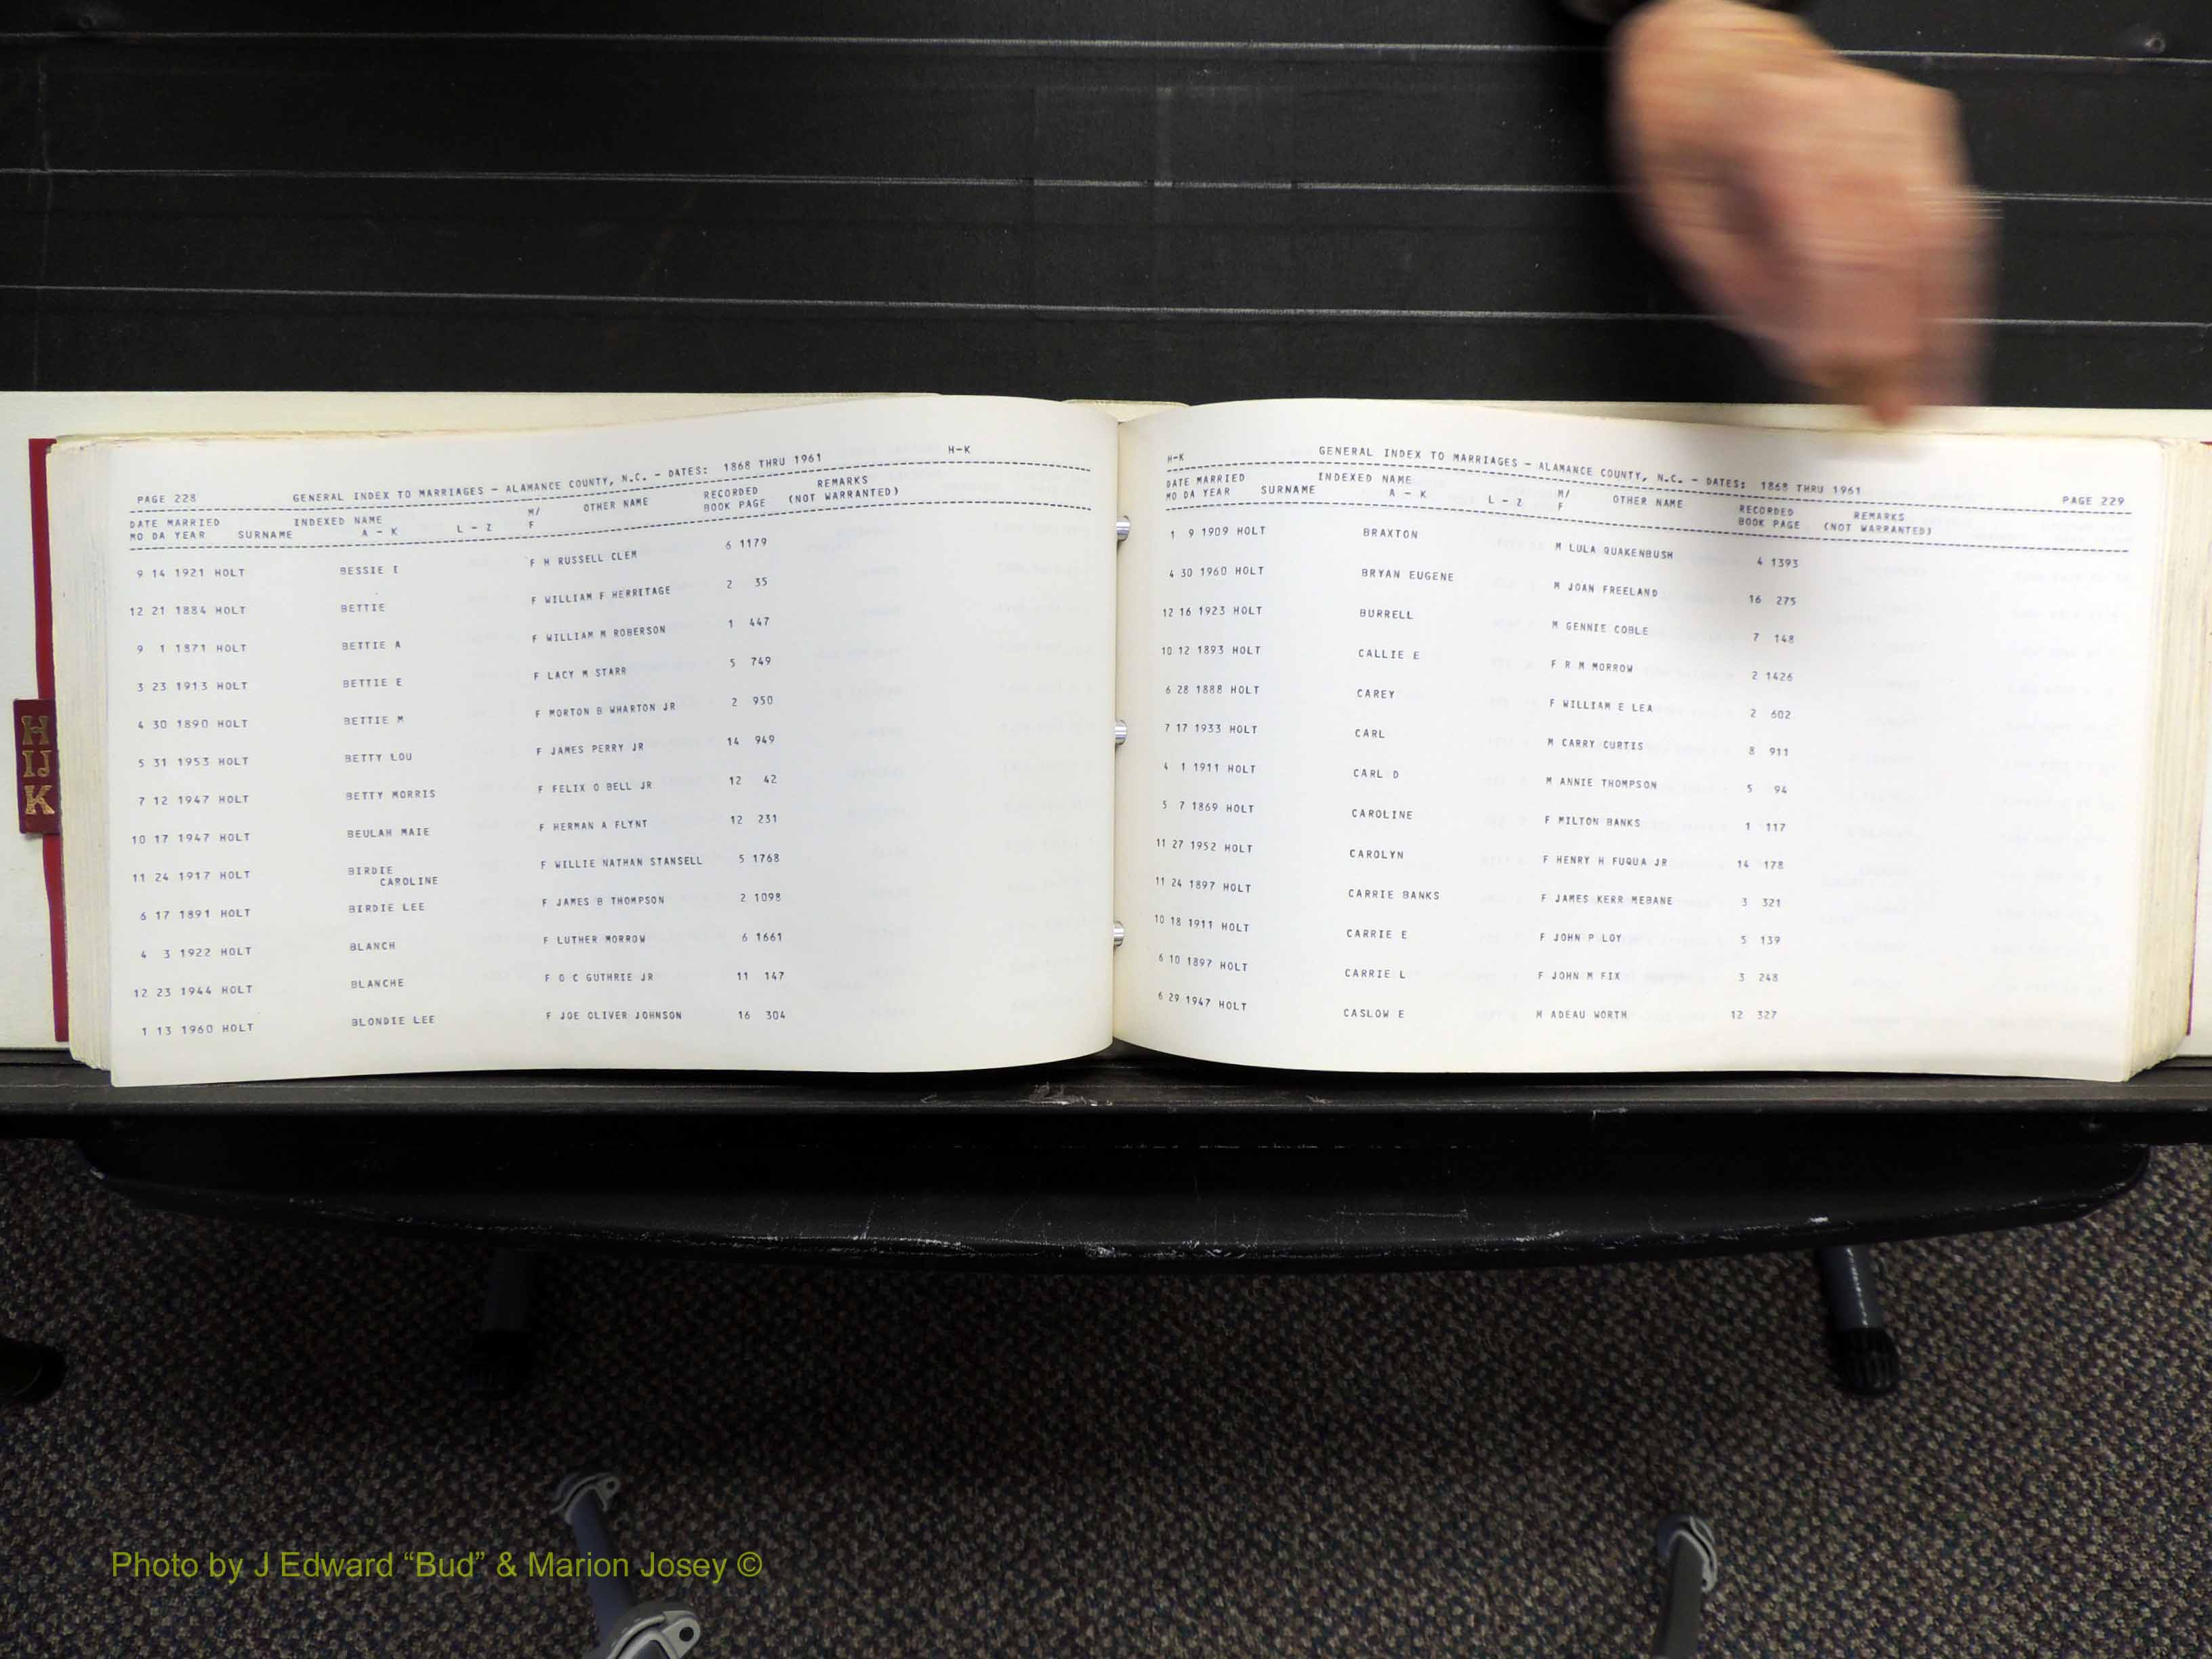 H
IJ
K
PAGE 228 GENERAL INDEX TO MARRIAGES - ALAMANCE COUNTY, N.C. - DATES: 1868 THRU 1961 H-K
DATE MARRIED INDEXED NAME M/ OTHER NAME RECORDED REMARKS
MO DA YEAR SURNAME A - K L - Z F BOOK PAGE (NOT WARRANTED)
9 14 1921 HOLT BESSIE I F H RUSSELL CLEM 6 1179
12 21 1884 HOLT BETTIE F WILLIAM F HERRITAGE 2 35
9 1 1871 HOLT BETTIE A F WILLIAM M ROBERSON 1 447
3 23 1913 HOLT BETTIE E F LACY M STARR 5 749
4 30 1890 HOLT BETTIE M F MORTON B WHARTON JR 2 950
5 31 1953 HOLT BETTY LOU F JAMES PERRY JR 14 949
7 12 1947 HOLT BETTY MORRIS F FELIX O BELL JR 12 42
10 17 1947 HOLT BEULAH MAIE F HERMAN A FLYNT 12 231
11 24 1917 HOLT BIRDIE F WILLIE NATHAN STANSELL 5 1768
CAROLINE
6 17 1891 HOLT BIRDIE LEE F JAMES B THOMPSON 2 1098
4 3 1922 HOLT BLANCH F LUTHER MORROW 6 1661
12 23 1944 HOLT BLANCHE F O C GUTHRIE JR 11 147
1 13 1960 HOLT BLONDIE LEE F JOE OLIVER JOHNSON 16 304
H-K GENERAL INDEX TO MARRIAGES - ALAMANCE COUNTY, N.C. - DATES: 1868 THRU 1961 PAGE 229
DATE MARRIED INDEXED NAME M/ OTHER NAME RECORDED REMARKS
MO DA YEAR SURNAME A - K L - Z F BOOK PAGE (NOT WARRANTED)
1 9 1909 HOLT BRAXTON M LULA QUAKENBUSH 4 1393
4 30 1960 HOLT BRYAN EUGENE M JOAN FREELAND 16 275
12 16 1923 HOLT BURRELL M GENNIE COBLE 7 148
10 12 1893 HOLT CALLIE E F R M MORROW 2 1426
6 28 1888 HOLT CAREY F WILLIAM E LEA 2 602
7 17 1933 HOLT CARL M CARRY CURTIS 8 911
4 1 1911 HOLT CARL D M ANNIE THOMPSON 5 94
5 7 1869 HOLT CAROLINE F MILTON BANKS 1 117
11 27 1952 HOLT CAROLYN F HENRY H FUQUA JR 14 178
11 24 1897 HOLT CARRIE BANKS F JAMES KERR MEBANE 3 321
10 18 1911 HOLT CARRIE E F JOHN P LOY 5 139
6 10 1897 HOLT CARRIE L F JOHN M FIX 3 248
6 29 1947 HOLT CASLOW E M ADEAU WORTH 12 327
Photo by J Edward “Bud” & Marion Josey ©